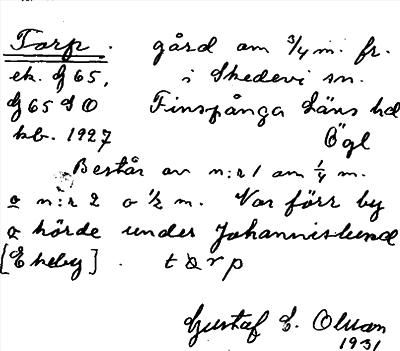 Torp. gård om 3/4 m. fr.
ek. G 65, i Skedevi sn.
G 65 S O Finspånga Läns hd
kb. 1927 Ögl
Består av n:r 1 om 1/4 m.
o n:r 2 o 1/2 m. Var förr by
o hörde under Johannislund
[Ekeby]. t å r p
Gustaf E. Olsson
1931